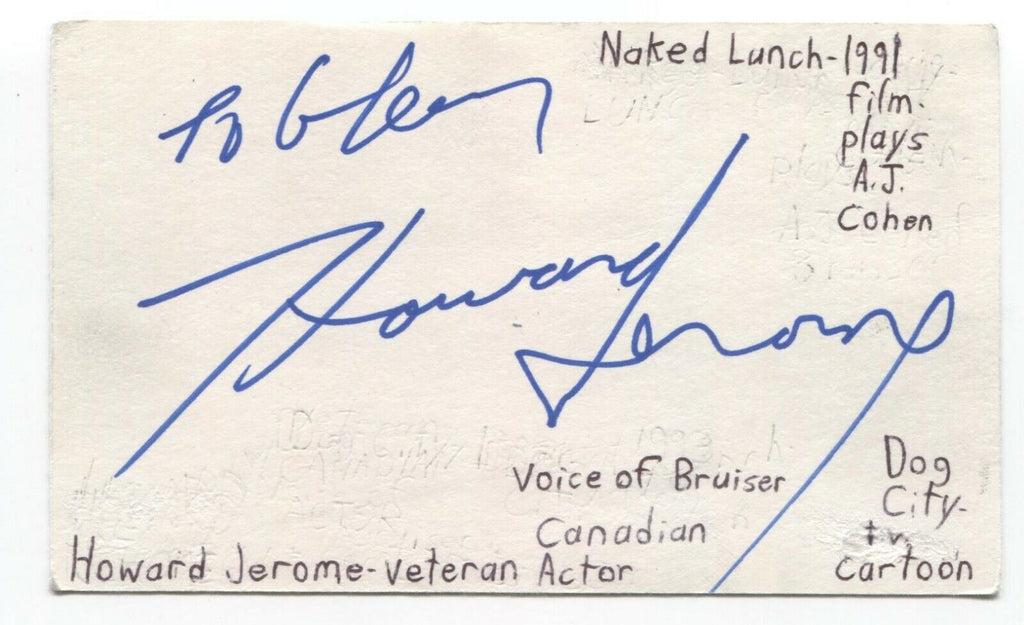 Naked Lunch-1991
film-
plays
A.J.
Cohen
To Glen
Howard Jerome
Voice of Bruiser
Canadian
Howard Jerome-veteran Actor
Dog
City-
tv.
cartoon